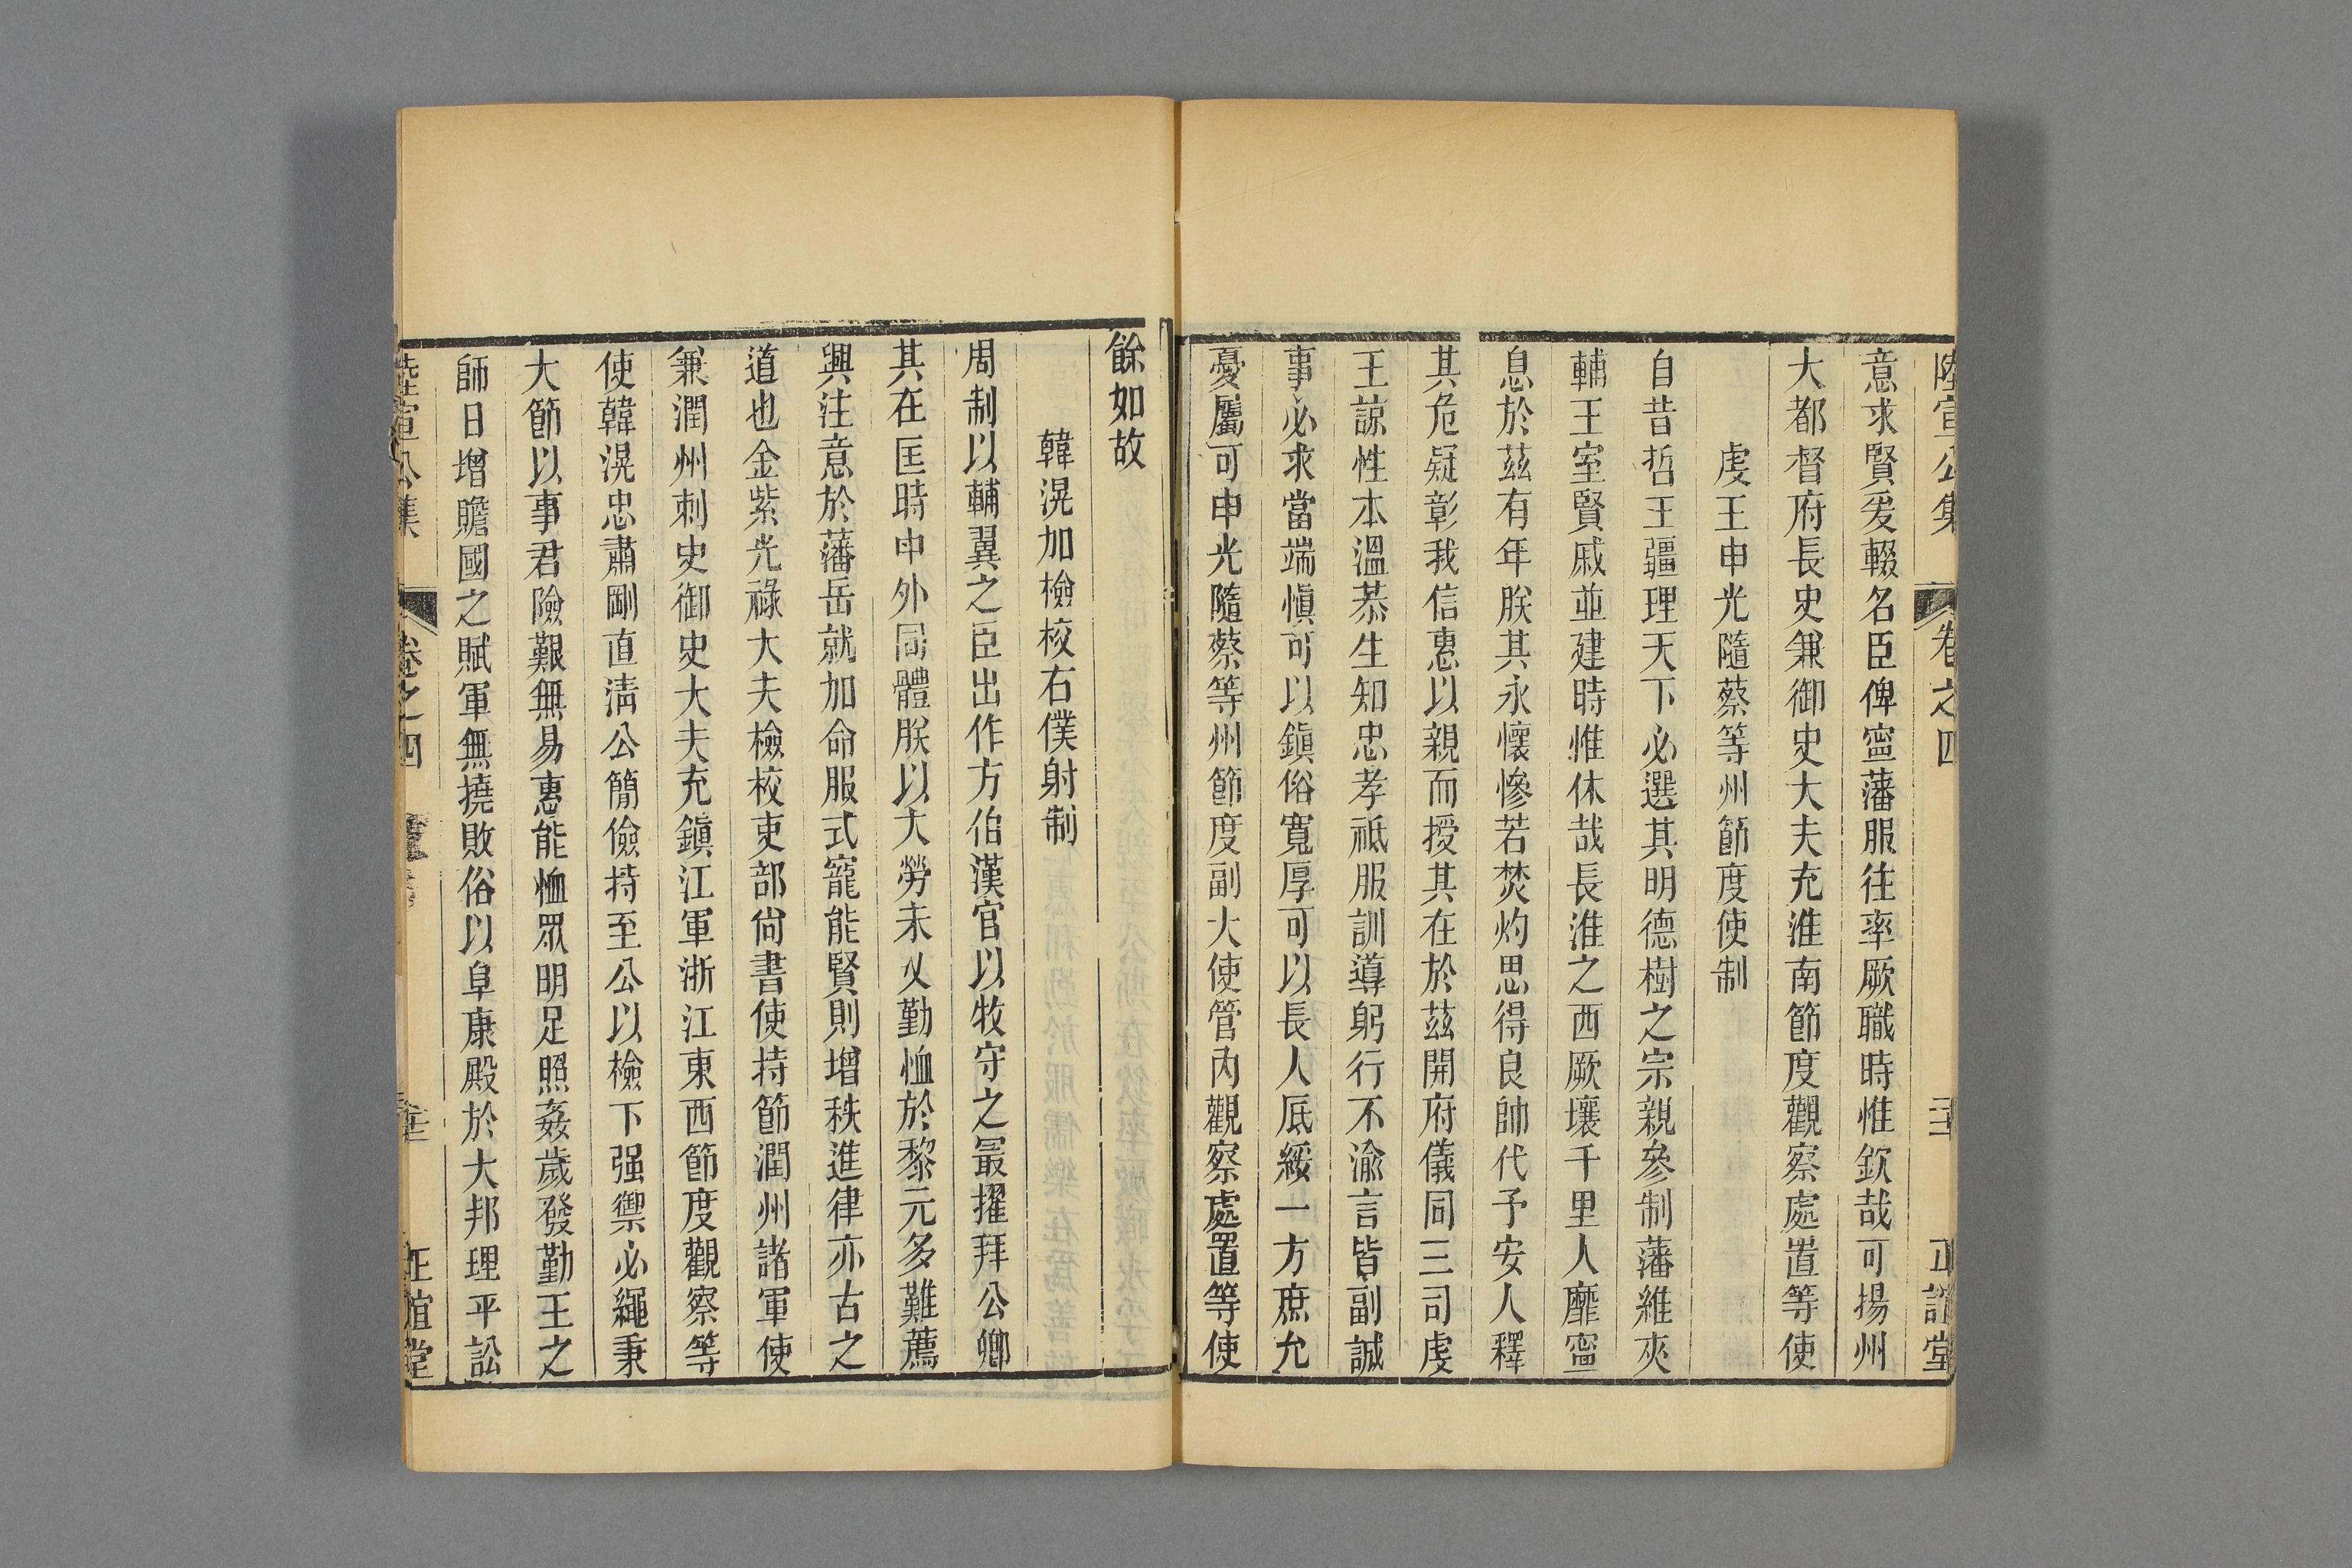 陸宣公集 卷之四 二十二 正誼堂
意求賢爰輟名臣俾寧藩服往率厥職時惟欽哉可揚州
大都督府長史兼御史大夫充淮南節度觀察處置等使
虔王申光隨蔡等州節度使制
自昔哲王疆理天下必選其明德樹之宗親參制藩維夾
輔王室賢戚並建時惟休哉長淮之西厥壤千里人靡寧
息於茲有年朕其永懷慘若焚灼思得良帥代予安人釋
其危疑彰我信惠以親而授其在於茲開府儀同三司虔
王諒性本溫恭生知忠孝祗服訓導躬行不渝言皆副誠
事必求當端愼可以鎭俗寬厚可以長人底綏一方庶允
憂屬可申光隨蔡等州節度副大使管內觀察處置等使
餘如故
韓滉加檢校右僕射制
周制以輔翼之臣出作方伯漢官以牧守之最擢拜公卿
其在匡時中外同體朕以大勞未乂勤恤於黎元多難薦
興注意於藩岳就加命服式寵能賢則增秩進律亦古之
道也金紫光祿大夫檢校吏部尚書使持節潤州諸軍使
兼潤州刺史御史大夫充鎭江軍浙江東西節度觀察等
使韓滉忠肅剛直淸公簡儉持至公以檢下强禦必繩秉
大節以事君險艱無易惠能恤眾明足照姦歲發勤王之
師日增贍國之賦軍無撓敗俗以阜康殿於大邦理平訟
陸宣公集 卷之四 正誼堂